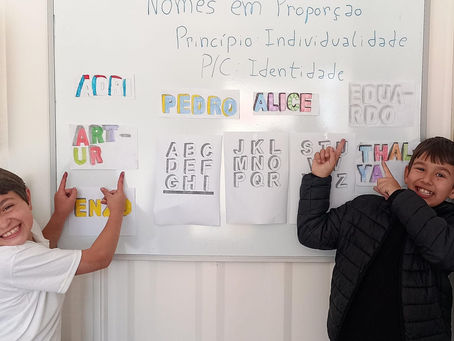 Nomes em Proporção
Princípio: Individualidade
P/C: Identidade
ADRI
PEDRO
ALICE
EDUA-
RDO
ART-
UR
ABC
DEF
GHI
JKL
MNO
PQR
THAL
YA
ENZO